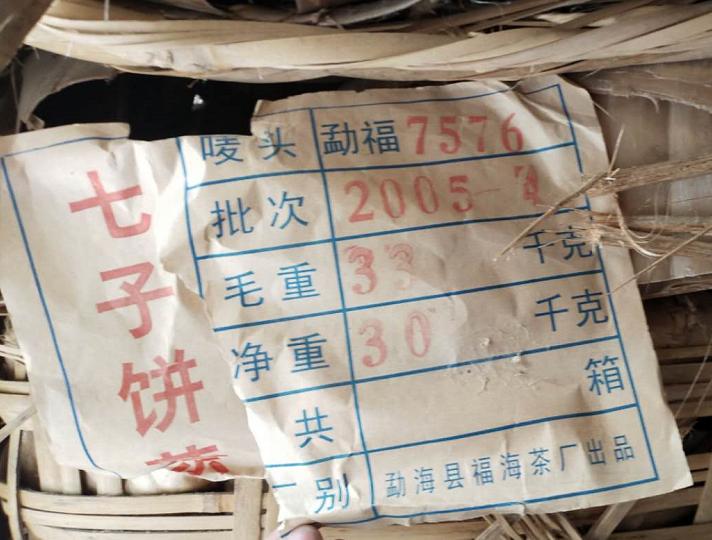 七子饼茶
唛头 勐福7576
批次 2005
毛重 33 千克
净重 30 千克
共 箱
别 勐海县福海茶厂出品